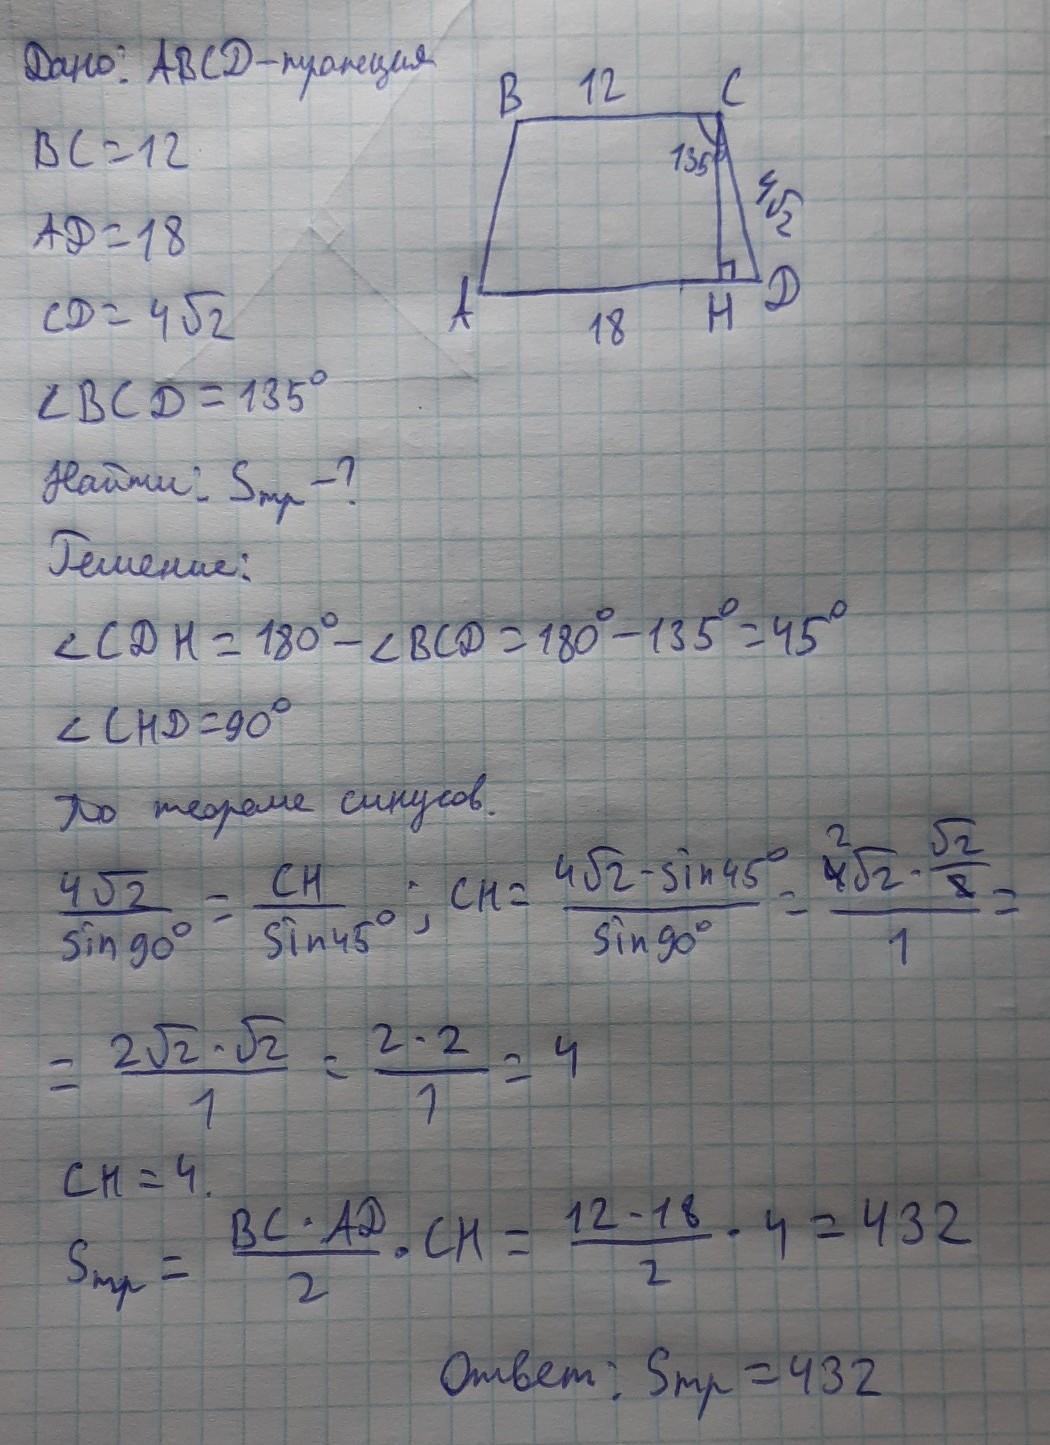 Дано: ABCD-трапеция
BC=12
AD=18
CD=4√2
∠BCD=135°
B 12 C
135
4√2
A 18 H D
Найти: Sтр-?
Решение:
∠CDH=180°-∠BCD=180°-135°=45°
∠CHD=90°
По теореме синусов.
4√2/sin90° = CH/sin45° ; CH= 4√2·sin45°/sin90° = 4√2·√2/2 /1 =
= 2√2·√2/1 = 2·2/1 = 4
CH=4.
Sтр = BC·AD/2 · CH = 12·18/2 · 4 = 432
Ответ: Sтр=432